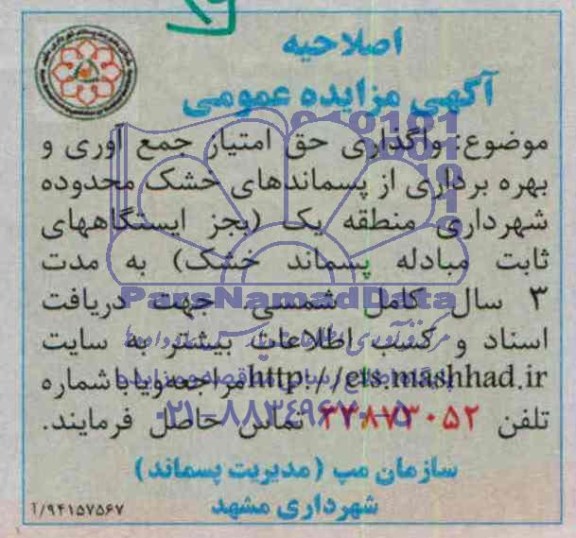 اصلاحیه
آگهی مزایده عمومی
موضوع: واگذاری حق امتیاز جمع آوری و
بهره برداری از پسماندهای خشک محدوده
شهرداری منطقه یک (بجز ایستگاههای
ثابت مبادله پسماند خشک) به مدت
ParsNamadData
۳ سال کامل شمسی. جهت دریافت
اسناد و کسب اطلاعات بیشتر به سایت
http://ets.mashhad.ir مراجعه و یا با شماره
۰۲۱-۸۸۳۴۹۶۷۰
تلفن ۳۷۸۷۳۰۵۲ تماس حاصل فرمایند.
سازمان مپ (مدیریت پسماند)
شهرداری مشهد
۹۴۱۵۷۵۶۷/آ